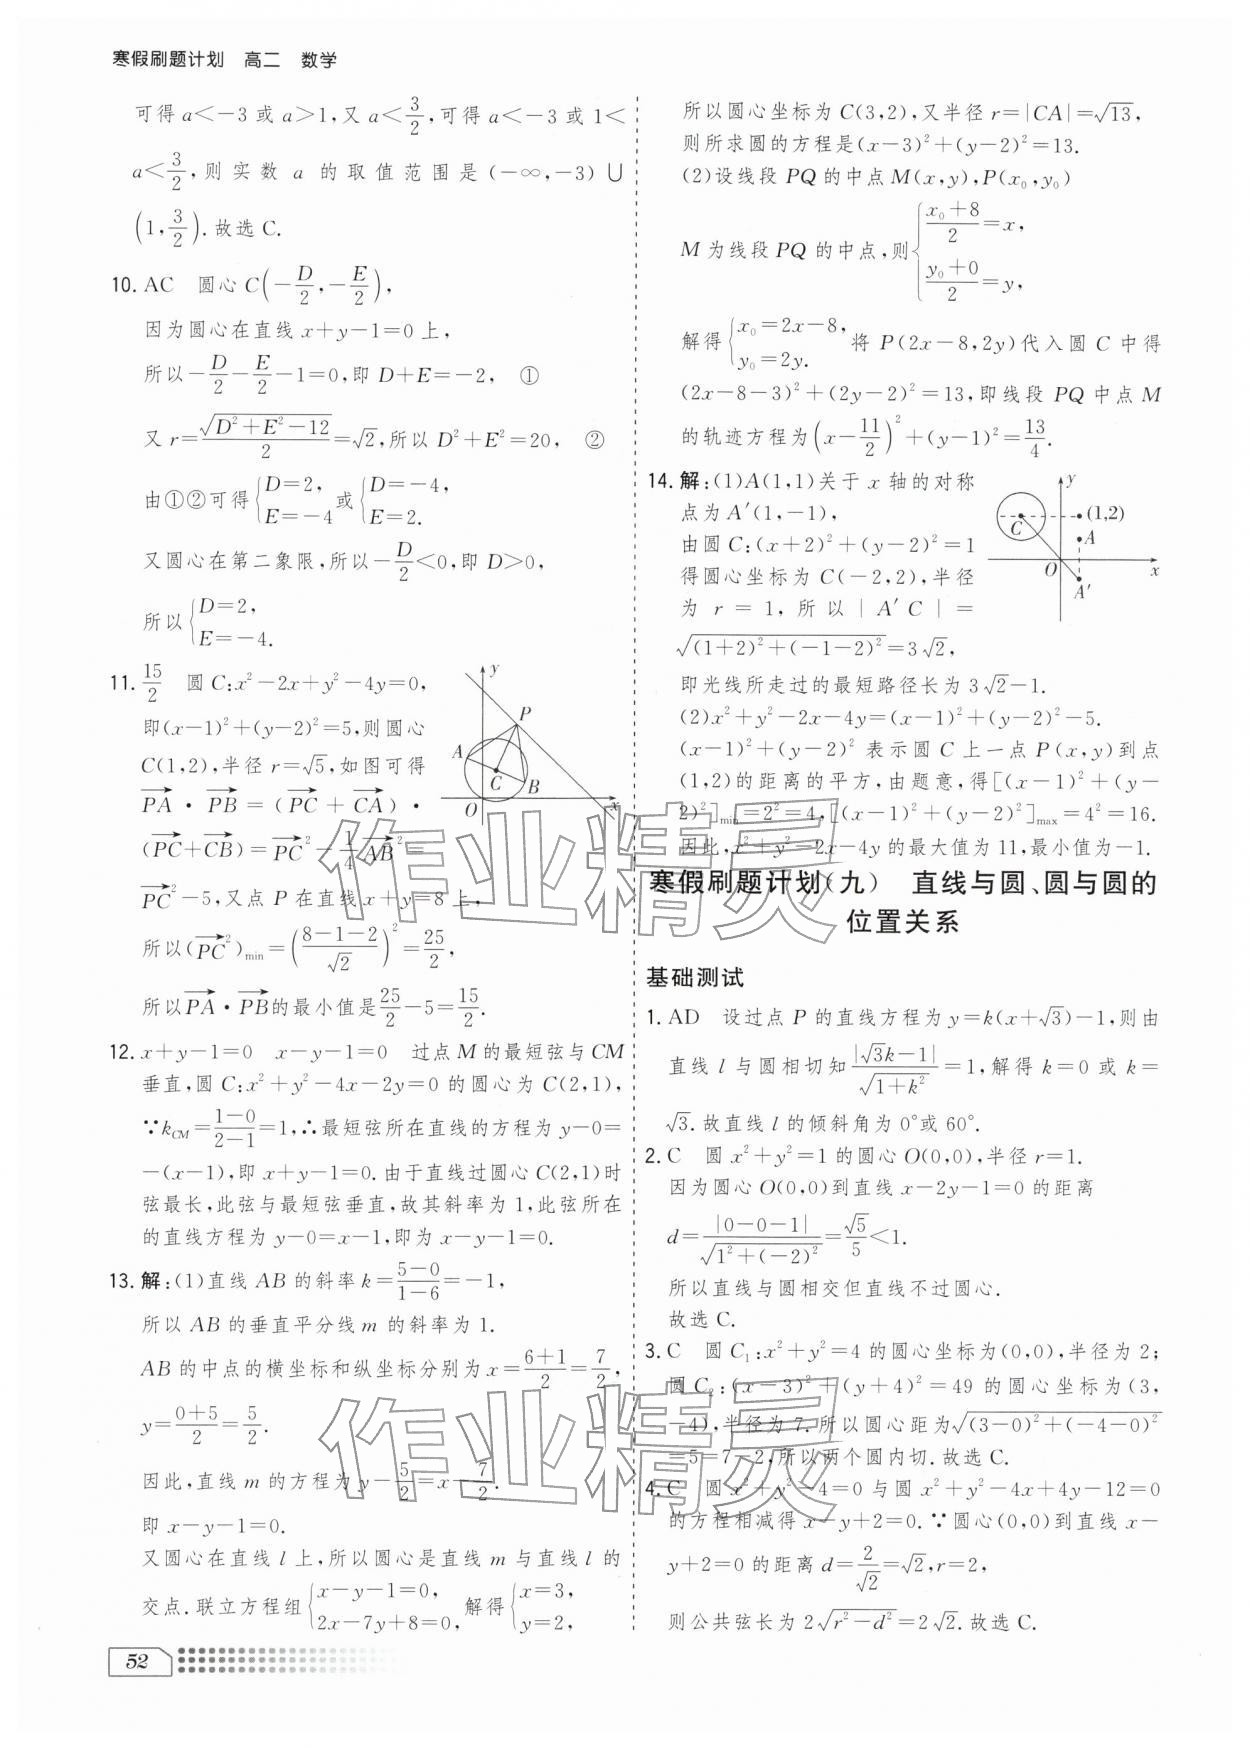 寒假刷题计划　高二　数学
可得 a＜－3 或 a＞1,又 a＜3/2,可得 a＜－3 或 1＜
a＜3/2,则实数 a 的取值范围是(－∞,－3)∪
(1,3/2).故选 C.
10. AC　圆心 C(－D/2,－E/2),
因为圆心在直线 x＋y－1＝0 上,
所以－D/2－E/2－1＝0,即 D＋E＝－2,　①
又 r＝√(D²＋E²－12)/2＝√2,所以 D²＋E²＝20,　②
由①②可得{D＝2, E＝－4 或{D＝－4, E＝2.
又圆心在第二象限,所以－D/2＜0,即 D＞0,
所以{D＝2, E＝－4.
11. 15/2　圆 C:x²－2x＋y²－4y＝0,
即(x－1)²＋(y－2)²＝5,则圆心
C(1,2),半径 r＝√5,如图可得
PA→·PB→＝(PC→＋CA→)·
(PC→＋CB→)＝PC→²－1/4 AB→²＝
PC→²－5,又点 P 在直线 x＋y＝8 上,
所以(PC→²)min＝((8－1－2)/√2)²＝25/2,
所以PA→·PB→的最小值是25/2－5＝15/2.
y
P
A
C
B
O
x
12. x＋y－1＝0　x－y－1＝0　过点 M 的最短弦与 CM
垂直,圆 C:x²＋y²－4x－2y＝0 的圆心为 C(2,1),
∵k_CM＝(1－0)/(2－1)＝1,∴最短弦所在直线的方程为 y－0＝
－(x－1),即 x＋y－1＝0.由于直线过圆心 C(2,1)时
弦最长,此弦与最短弦垂直,故其斜率为 1,此弦所在
的直线方程为 y－0＝x－1,即为 x－y－1＝0.
13. 解:(1)直线 AB 的斜率 k＝(5－0)/(1－6)＝－1,
所以 AB 的垂直平分线 m 的斜率为 1.
AB 的中点的横坐标和纵坐标分别为 x＝(6＋1)/2＝7/2,
y＝(0＋5)/2＝5/2.
因此,直线 m 的方程为 y－5/2＝x－7/2.
即 x－y－1＝0.
又圆心在直线 l 上,所以圆心是直线 m 与直线 l 的
交点.联立方程组{x－y－1＝0, 2x－7y＋8＝0,　解得{x＝3, y＝2,
52
所以圆心坐标为 C(3,2),又半径 r＝|CA|＝√13,
则所求圆的方程是(x－3)²＋(y－2)²＝13.
(2)设线段 PQ 的中点 M(x,y),P(x₀,y₀)
M 为线段 PQ 的中点,则{(x₀＋8)/2＝x, (y₀＋0)/2＝y,
解得{x₀＝2x－8, y₀＝2y. 将 P(2x－8,2y)代入圆 C 中得
(2x－8－3)²＋(2y－2)²＝13,即线段 PQ 中点 M
的轨迹方程为(x－11/2)²＋(y－1)²＝13/4.
14. 解:(1)A(1,1)关于 x 轴的对称
点为 A′(1,－1),
由圆 C:(x＋2)²＋(y－2)²＝1
得圆心坐标为 C(－2,2),半径
为 r＝1,所以|A′C|＝
√((1＋2)²＋(－1－2)²)＝3√2,
即光线所走过的最短路径长为 3√2－1.
y
C
(1,2)
A
O
x
A′
(2)x²＋y²－2x－4y＝(x－1)²＋(y－2)²－5.
(x－1)²＋(y－2)² 表示圆 C 上一点 P(x,y)到点
(1,2)的距离的平方,由题意,得[(x－1)²＋(y－
2)²]min＝2²＝4,[(x－1)²＋(y－2)²]max＝4²＝16.
因此,x²＋y²－2x－4y 的最大值为 11,最小值为－1.
寒假刷题计划(九)　直线与圆、圆与圆的
位置关系
基础测试
1. AD　设过点 P 的直线方程为 y＝k(x＋√3)－1,则由
直线 l 与圆相切知|√3k－1|/√(1＋k²)＝1,解得 k＝0 或 k＝
√3.故直线 l 的倾斜角为 0°或 60°.
2. C　圆 x²＋y²＝1 的圆心 O(0,0),半径 r＝1.
因为圆心 O(0,0)到直线 x－2y－1＝0 的距离
d＝|0－0－1|/√(1²＋(－2)²)＝√5/5＜1.
所以直线与圆相交但直线不过圆心.
故选 C.
3. C　圆 C₁:x²＋y²＝4 的圆心坐标为(0,0),半径为 2;
圆 C₂:(x－3)²＋(y＋4)²＝49 的圆心坐标为(3,
－4),半径为 7.所以圆心距为√((3－0)²＋(－4－0)²)
＝5＝7－2,所以两个圆内切.故选 C.
4. C　圆 x²＋y²－4＝0 与圆 x²＋y²－4x＋4y－12＝0
的方程相减得 x－y＋2＝0.∵圆心(0,0)到直线 x－
y＋2＝0 的距离 d＝2/√2＝√2,r＝2,
则公共弦长为 2√(r²－d²)＝2√2.故选 C.
作业精灵
作业精灵